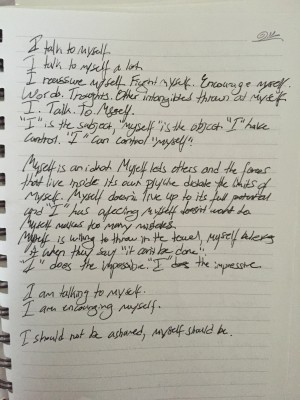 I talk to myself.
I talk to myself a lot.
I reassure myself. Fight myself. Encourage myself.
Words. Thoughts. Other intangibles thrown at myself.
I. Talk. To. Myself.
"I" is the subject, "myself" is the object. "I" have
control. "I" can control "myself".
Myself is an idiot. Myself lets others and the forces
that live inside its own psyche dictate the limits of
myself. Myself doesn't live up to its full potential
and "I" has affecting myself doesn't want to.
Myself makes too many mistakes.
Myself is willing to throw in the towel, myself believes
it when they say "it can't be done".
"I" does the impossible. "I" does the impressive.
I am talking to myself.
I am encouraging myself.
I should not be ashamed, myself should be.